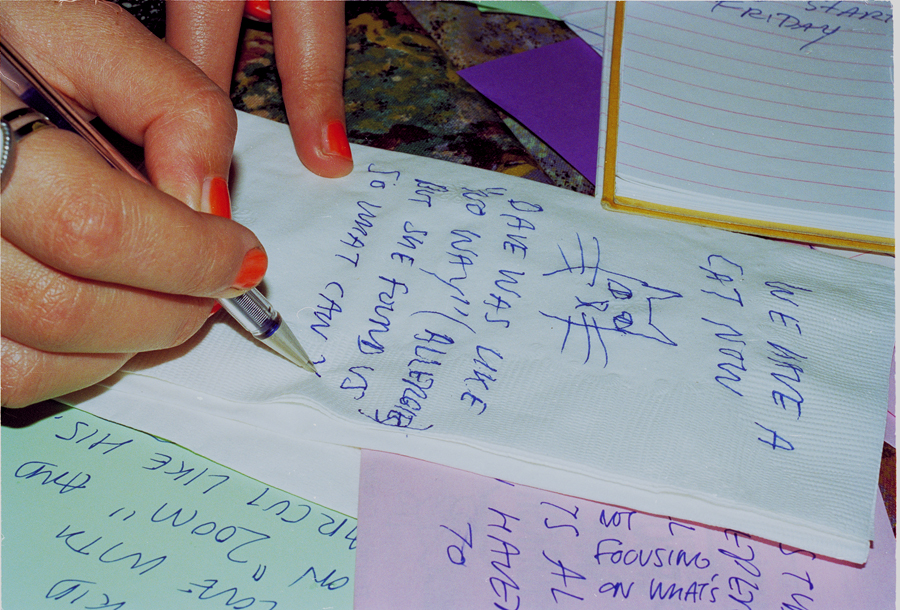 START
FRIDAY
WE HAVE A
CAT NOW
DAVE WAS LIKE
"NO WAY" (ALLERGIES)
BUT SHE FOUND US.
SO WHAT CAN
KID
LOVE WITH
ON "ZOOM" AND
RCUT LIKE HIS.
TS AL
HAVE
TO
NOT
FOCUSING
ON WHAT'S